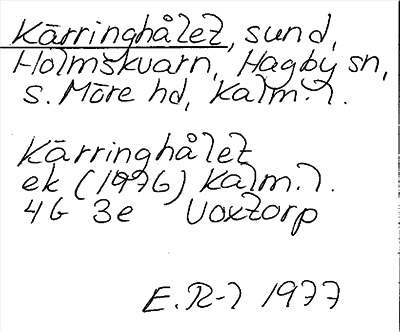 Kärringhålet, sund,
Holmskvarn, Hagby sn,
S. Möre hd, Kalm. l.
Kärringhålet
ek (1976) Kalm. l.
4G 3e Voxtorp
E.R-l 1977